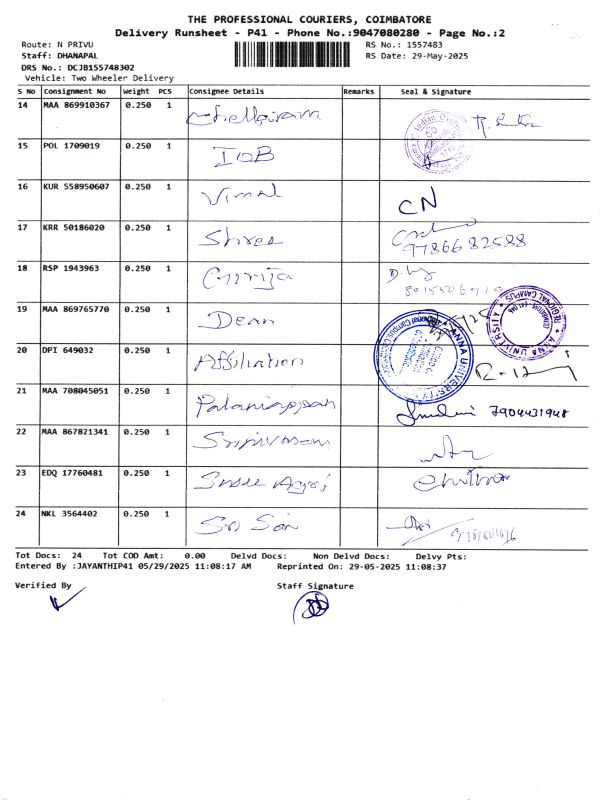 THE PROFESSIONAL COURIERS, COIMBATORE
Delivery Runsheet - P41 - Phone No.:9047080280 - Page No.:2
Route: N PRIVU RS No.: 1557483
Staff: DHANAPAL RS Date: 29-May-2025
DRS No.: DCJB155748302
Vehicle: Two Wheeler Delivery
S No Consignment No Weight PCS Consignee Details Remarks Seal & Signature
14 MAA 869910367 0.250 1 Chellairam
15 POL 1709019 0.250 1 IOB
16 KUR 558950607 0.250 1 Vimal CN
17 KRR 50186020 0.250 1 Shree 9786682588
18 RSP 1943963 0.250 1 Girija
19 MAA 869765770 0.250 1 Dean ANNA UNIVERSITY REGIONAL CAMPUS
20 DPI 649032 0.250 1 Affiliation ANNA UNIVERSITY
21 MAA 708045051 0.250 1 Palaniappan 7904431948
22 MAA 867821341 0.250 1 Srinivasan
23 EDQ 17760481 0.250 1 Sree Agri Chithra
24 NKL 3564402 0.250 1 Sri Sai
Tot Docs: 24 Tot COD Amt: 0.00 Delvd Docs: Non Delvd Docs: Delvy Pts:
Entered By :JAYANTHIP41 05/29/2025 11:08:17 AM Reprinted On: 29-05-2025 11:08:37
Verified By Staff Signature